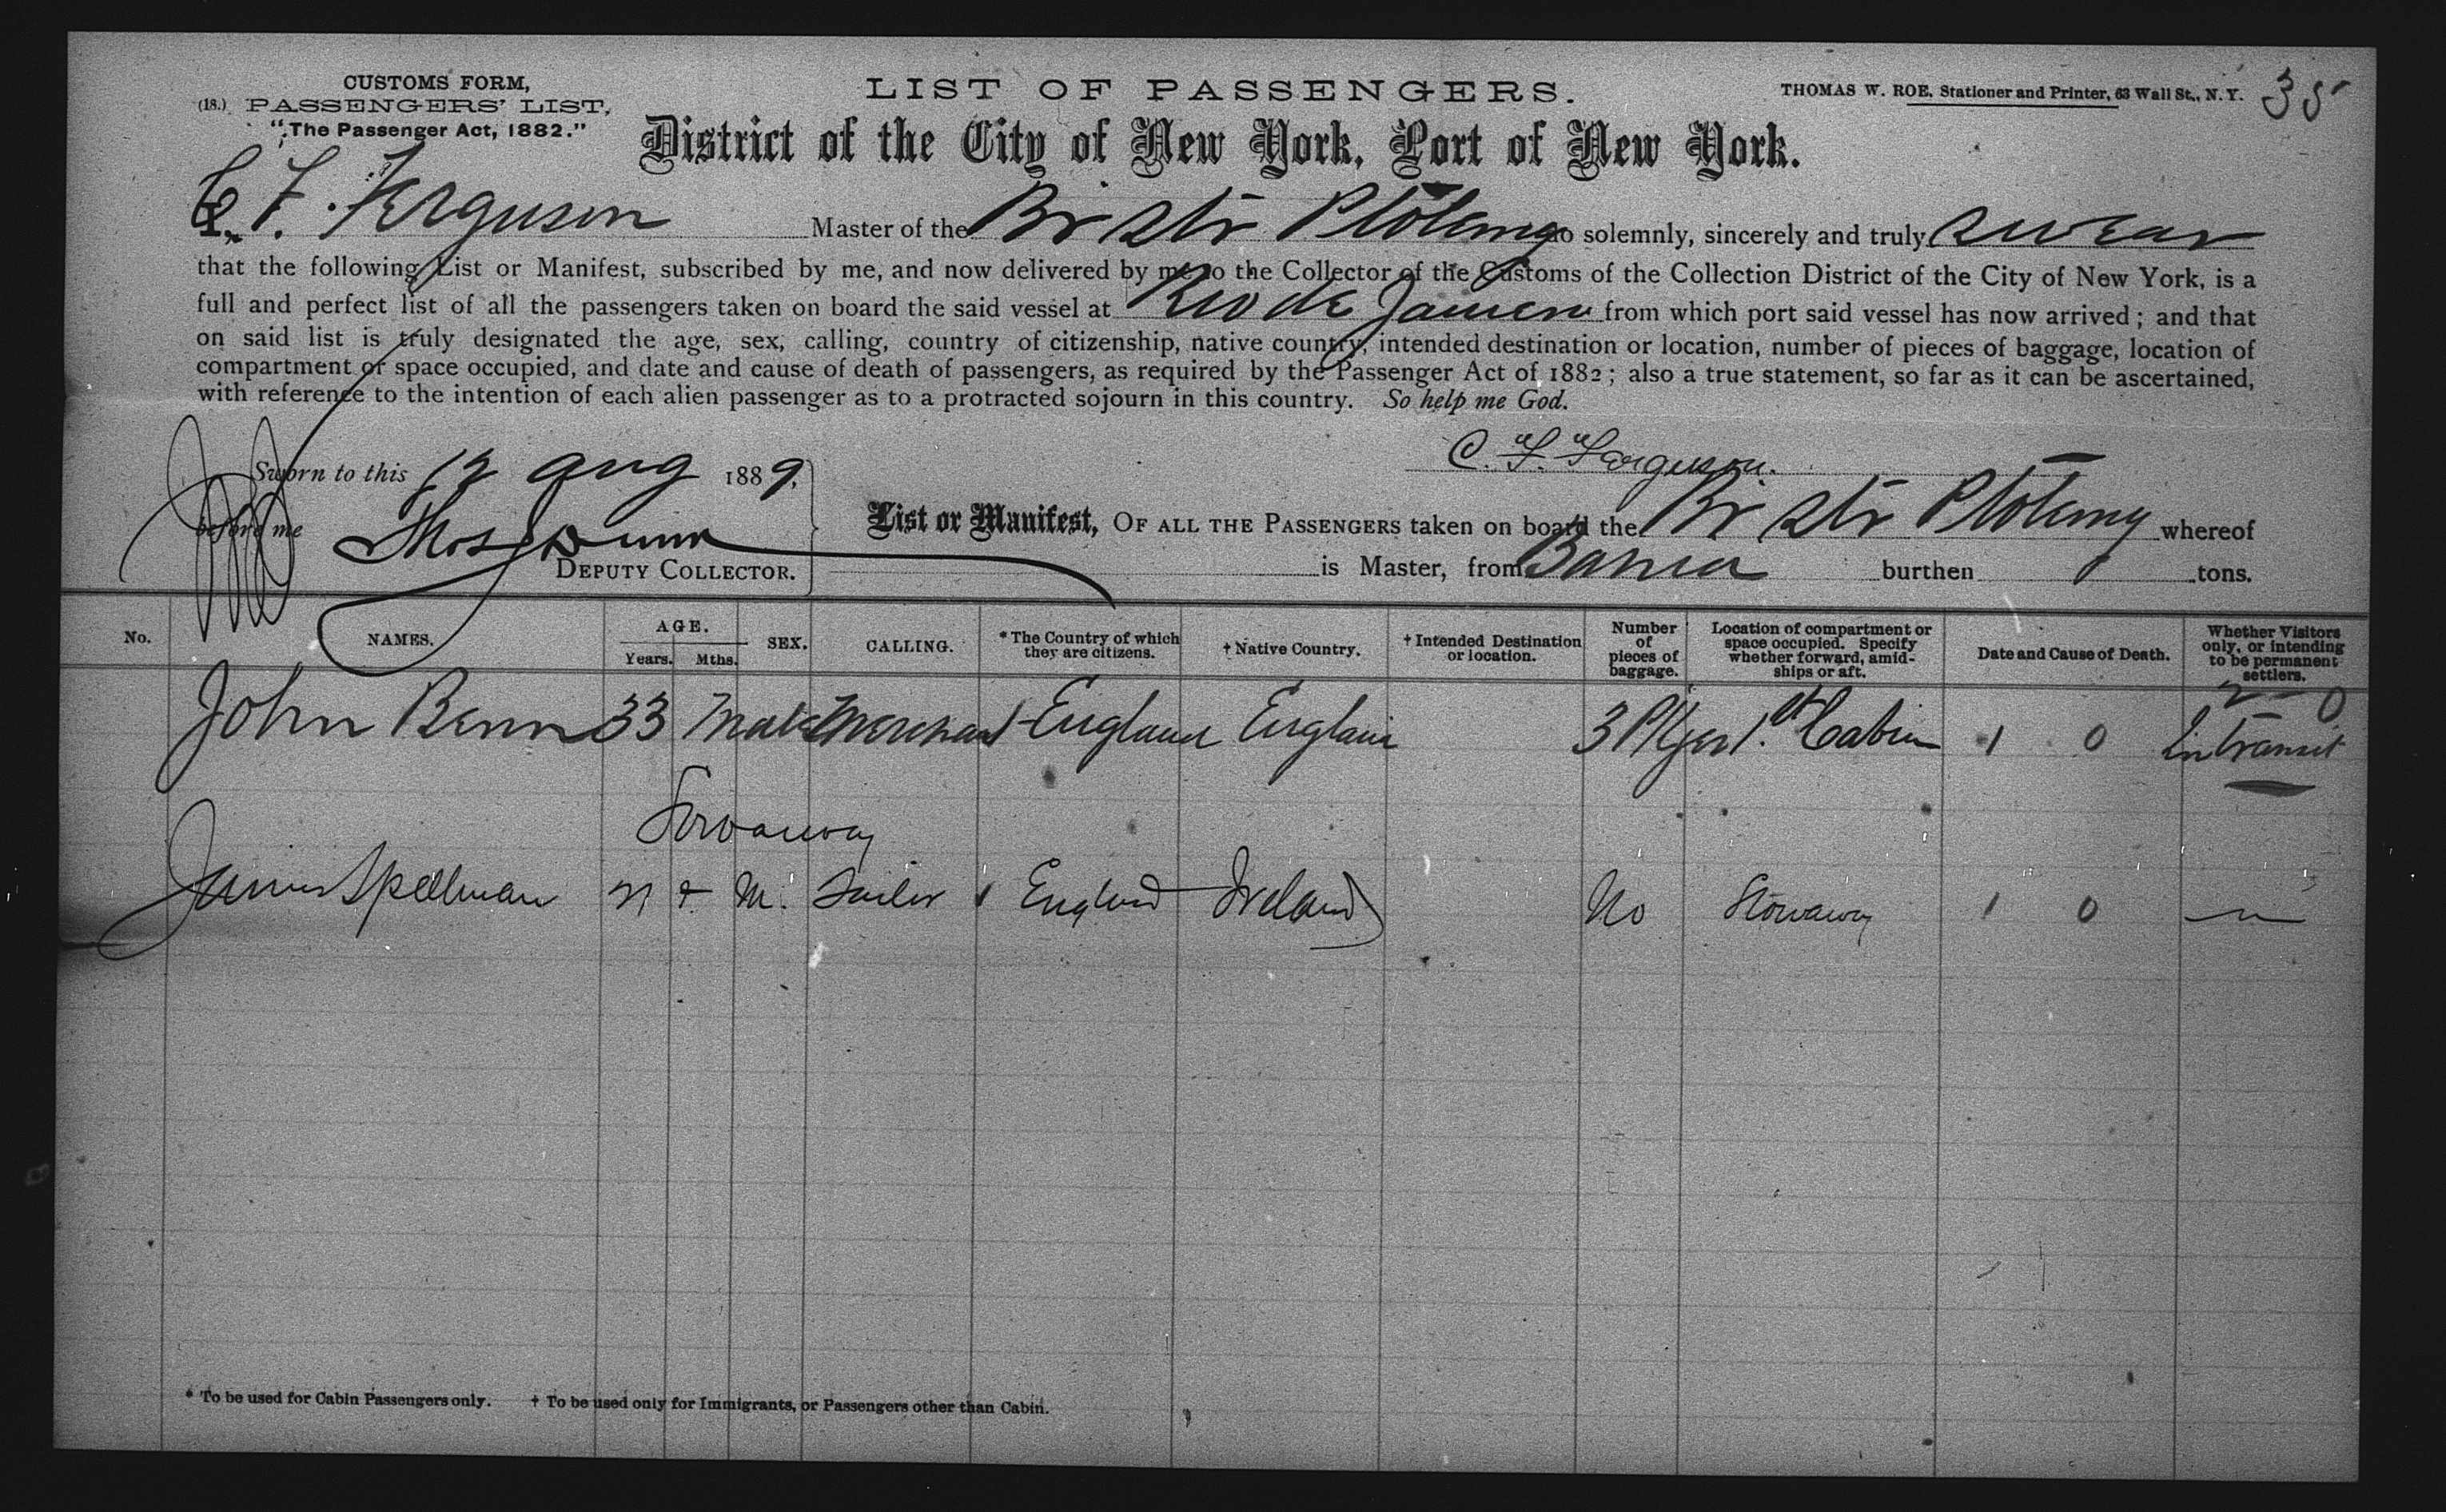 CUSTOMS FORM,
(18.) PASSENGERS' LIST,
"The Passenger Act, 1882."
LIST OF PASSENGERS.
THOMAS W. ROE, Stationer and Printer, 63 Wall St., N. Y.
35
District of the City of New York, Port of New York.
I, C. F. Ferguson Master of the Br Str Ptolemy do solemnly, sincerely and truly swear
that the following List or Manifest, subscribed by me, and now delivered by me to the Collector of the Customs of the Collection District of the City of New York, is a
full and perfect list of all the passengers taken on board the said vessel at Rio de Janeiro from which port said vessel has now arrived; and that
on said list is truly designated the age, sex, calling, country of citizenship, native country, intended destination or location, number of pieces of baggage, location of
compartment or space occupied, and date and cause of death of passengers, as required by the Passenger Act of 1882; also a true statement, so far as it can be ascertained,
with reference to the intention of each alien passenger as to a protracted sojourn in this country. So help me God.
C. F. Ferguson.
Sworn to this 12 Aug 1889,
before me Thos Dunn
DEPUTY COLLECTOR.
List or Manifest, OF ALL THE PASSENGERS taken on board the Br Str Ptolemy whereof
is Master, from Bahia burthen tons.
No. NAMES. AGE. Years. Mths. SEX. CALLING. * The Country of which they are citizens. † Native Country. † Intended Destination or location. Number of pieces of baggage. Location of compartment or space occupied. Specify whether forward, amidships or aft. Date and Cause of Death. Whether Visitors only, or intending to be permanent settlers.
2 - 0
John Benn 33 Male Merchant England England 3 Pkges 1st Cabin 1 0 In transit
Stowaway
James Spellman 21 M. Sailor England Ireland No Stowaway 1 0
* To be used for Cabin Passengers only. † To be used only for Immigrants, or Passengers other than Cabin.